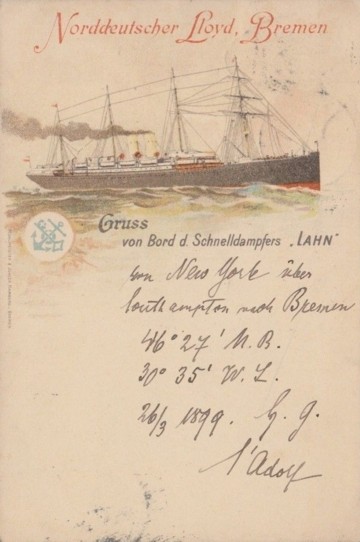 Norddeutscher Lloyd, Bremen
Gruss
von Bord d. Schnelldampfers „LAHN"
von New York über
Southampton nach Bremen
46° 27' N. B.
30° 35' W. L.
26/3 1899. H. G.
Adolf